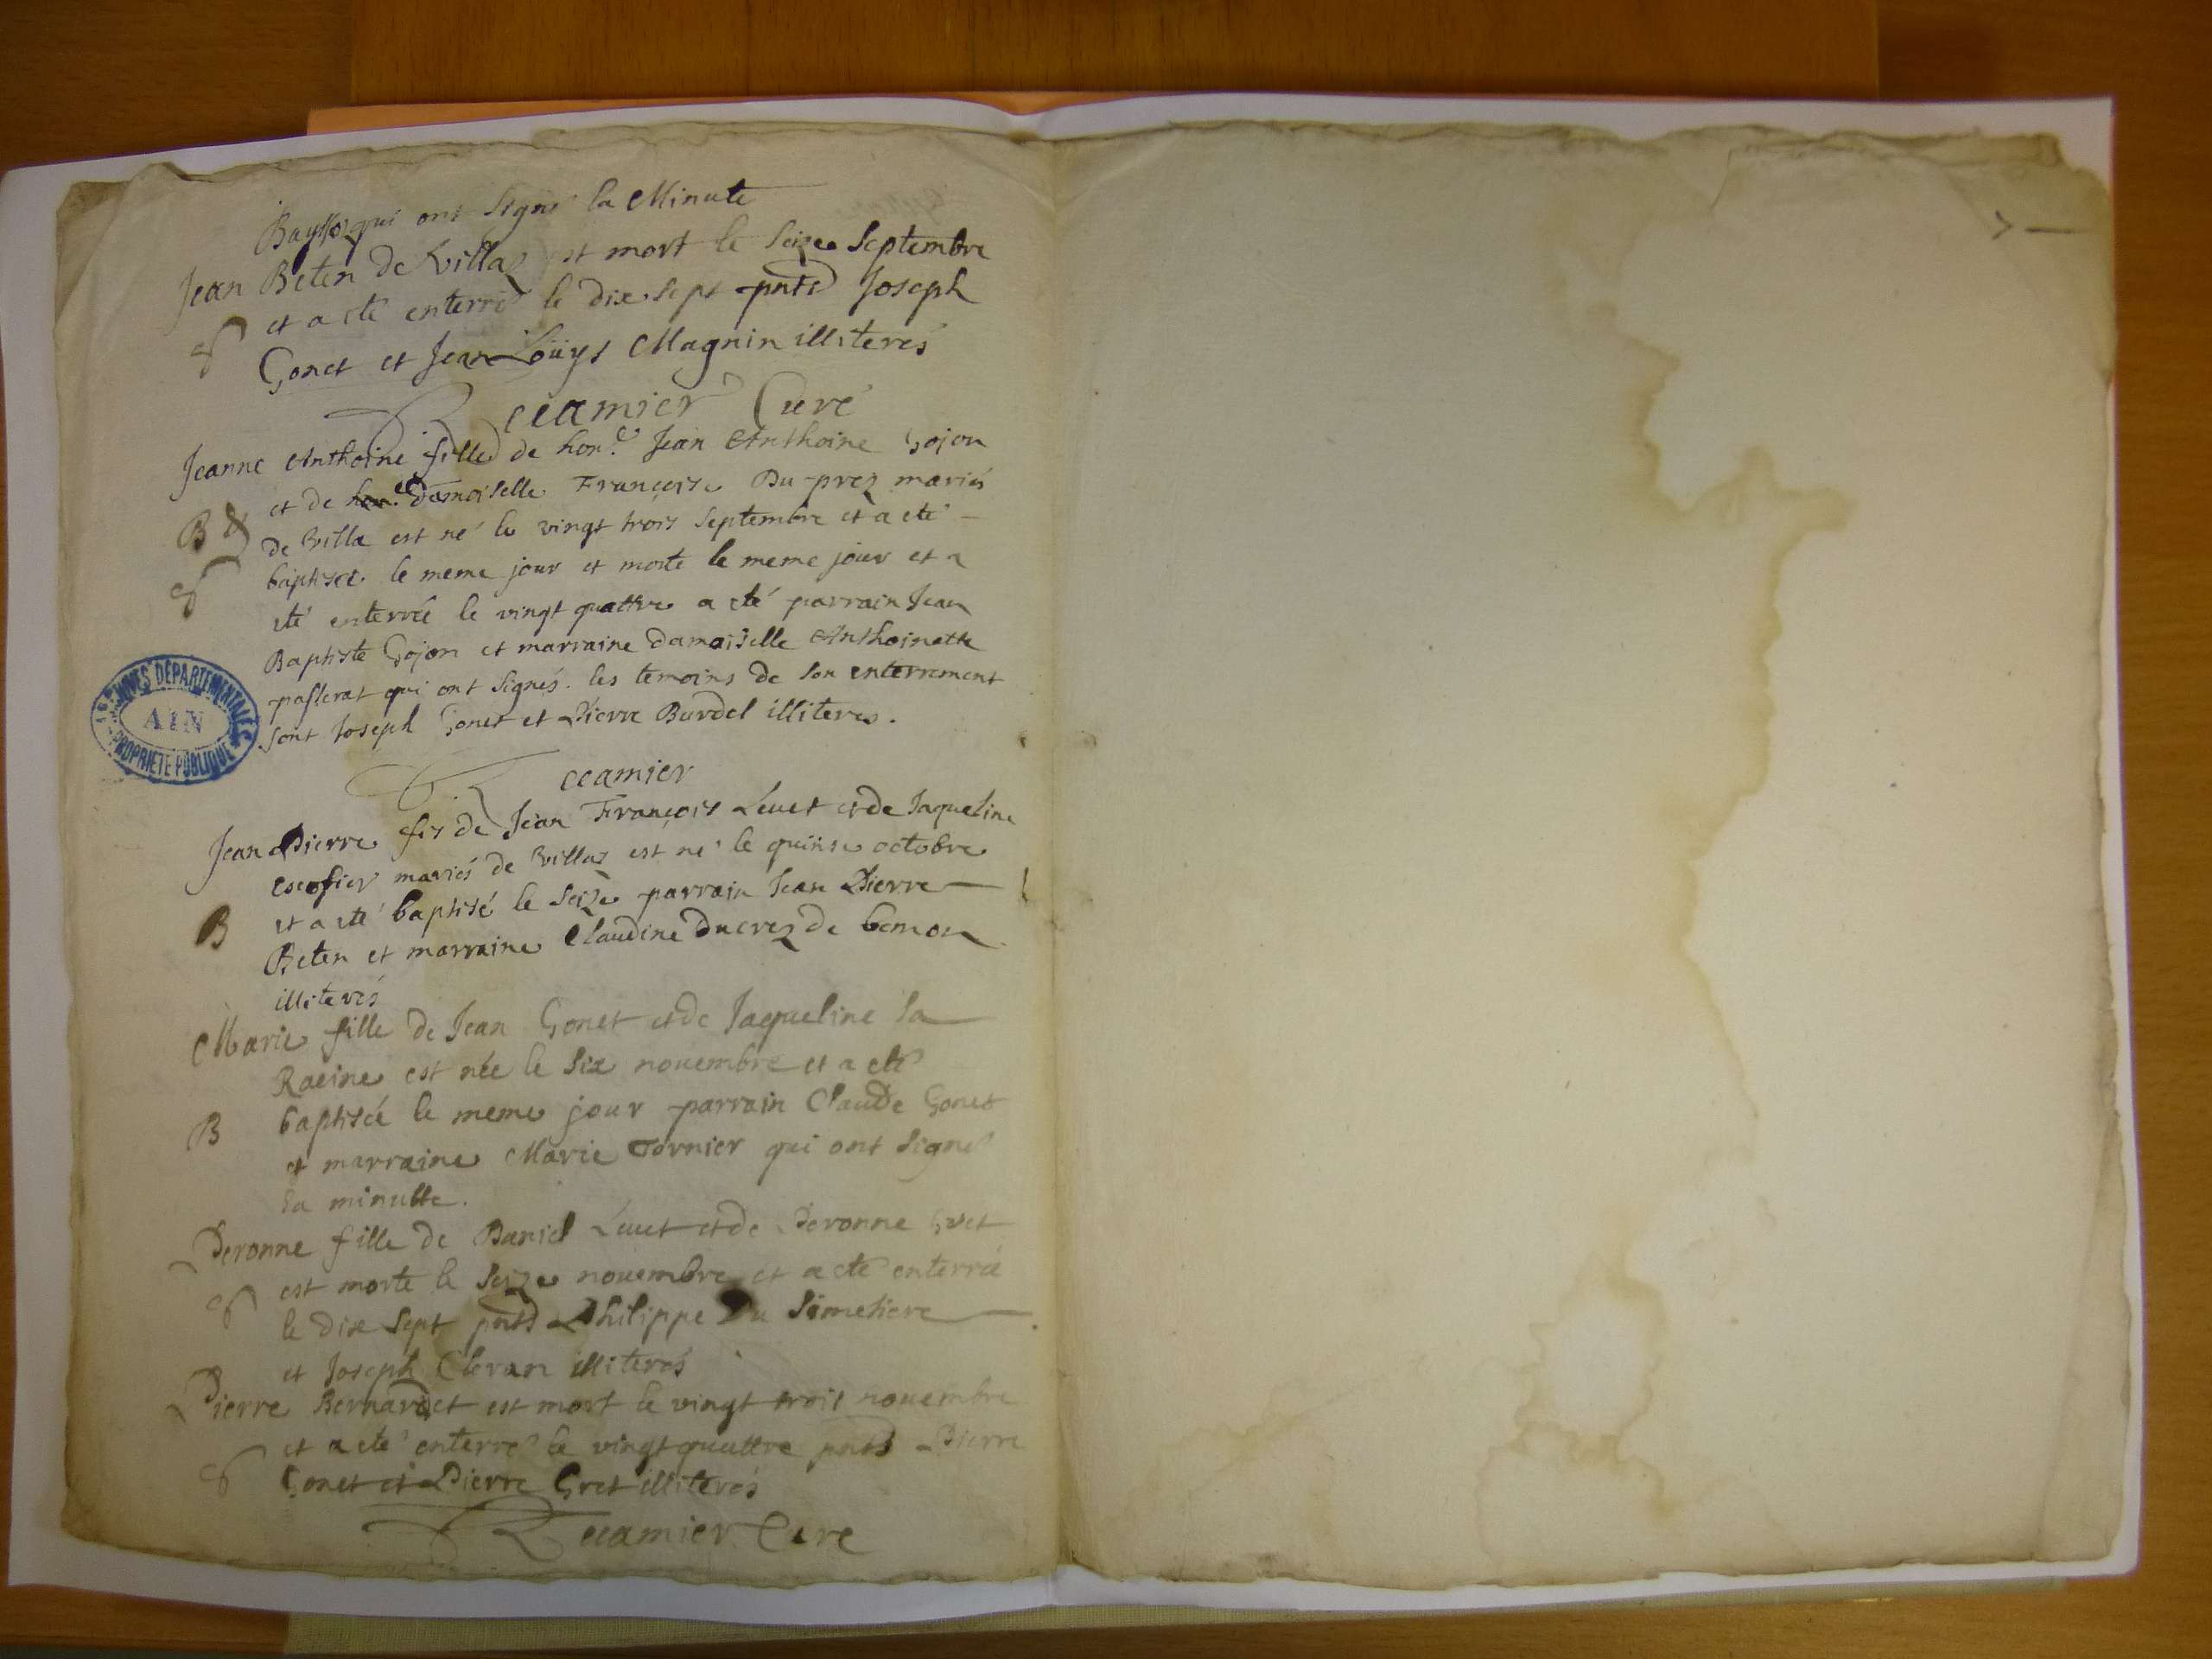 qui ont Signé la Minute
Jean Beten de Villaz est mort le Seize Septembre
et a eté enterré le dix Sept pnts Joseph
Gonet et Jean Loüys Magnin illiterés
Recamier Curé
Jeanne Anthoine fille de hon.e Jean Anthoine Gojon
et de damoiselle Françoise Du prez mariés
B
de Villa est né le vingt trois Septembre et a eté
baptisée le meme jour et morte le meme jour et a
eté enterrée le vingt quattre a eté parrain Jean
Baptiste Gojon et marraine damoiselle Anthoinette
passerat qui ont Signés. les temoins de Son enterrement
Sont Joseph Gonet et Pierre Burdel illiteres.
ARCHIVES DÉPARTEMENTALES
AIN
PROPRIÉTÉ PUBLIQUE
Recamier
Jean Pierre fis de Jean François Levet et de Jaqueline
escofier mariés de Villaz est né le quinse octobre
B
et a eté baptisé le Seize parrain Jean Pierre
Beten et marraine Claudine Ducrez de bemon
illiterés
Marie fille de Jean Gonet et de Jaqueline la
Racine est née le Six novembre et a eté
B
baptisée le meme jour parrain Claude Gonet
et marraine Marie Tornier qui ont Signé
la minutte.
Peronne fille de Daniel Levet et de Peronne Gret
est morte le Seize novembre et a eté enterrée
le dix Sept pnts Philippe Du Simetiere
et Joseph illiterés
Pierre Bernardet est mort le vingt trois novembre
et a eté enterré le vingt quattre pnts Pierre
Gonet et Pierre Gret illiterés
Recamier Curé